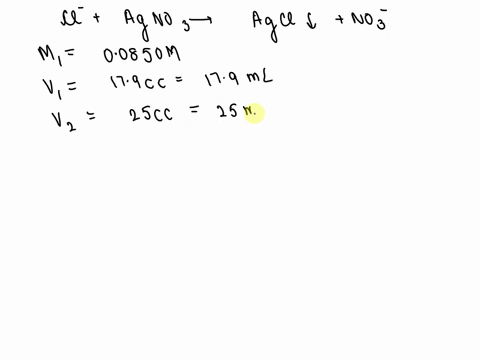 Cl⁻ + AgNO₃ → AgCl ↓ + NO₃⁻
M₁ = 0.0850M
V₁ = 17.9cc = 17.9 mL
V₂ = 25cc = 25 m